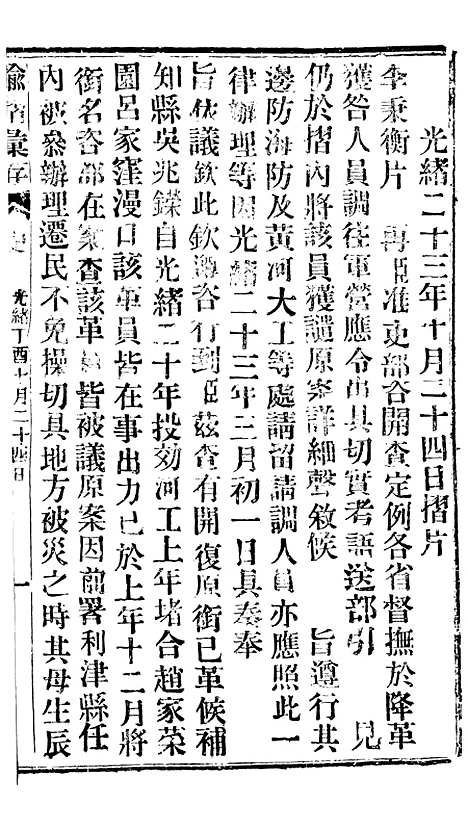 光緒二十三年十月二十四日摺片
李秉衡片　再臣准吏部咨開查定例各省督撫於降革
獲咎人員調往軍營應令出具切實考語送部引　見
仍於摺內將該員獲譴原案詳細聲敘候　旨遵行其
邊防海防及黃河大工等處請留請調人員亦應照此一
律辦理等因光緒二十三年三月初一日具奏奉
旨依議欽此欽遵咨行到臣茲查有開復原銜已革候補
知縣吳兆鑅自光緒二十年投効河工上年堵合趙家菜
園呂家窪漫口該革員皆在事出力已於上年十二月將
銜名咨部在案查該革員皆被議原案因前署利津縣任
內被叅辦理遷民不免操切具地方被災之時其母生辰
諭摺彙存　光緒丁酉十月二十四日